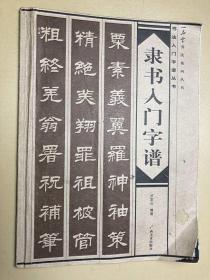 书法入门字谱丛书
隶书入门字谱
粟素義翼羅神袖策
精絶美翔罪祖被管
粗終羌翁署祝補筆